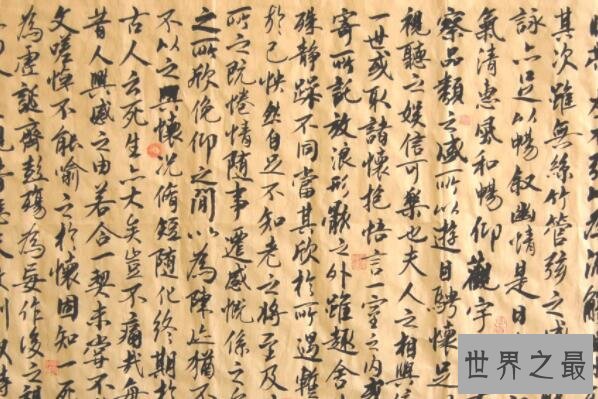 其次雖無絲竹管弦之
詠亦足以暢敘幽情是日
氣清惠風和暢仰觀宇
察品類之盛所以遊目騁懷足
視聽之娛信可樂也夫人之相與
一世或取諸懷抱悟言一室之內
寄所託放浪形骸之外雖趣舍
殊靜躁不同當其欣於所遇暫
於己怏然自足不知老之將至及
所之既惓情隨事遷感慨係之
之所欣俛仰之間以為陳迹猶不
不以之興懷況脩短隨化終期於
古人云死生亦大矣豈不痛哉每
昔人興感之由若合一契未嘗不
文嗟悼不能喻之於懷固知一死
為虛誕齊彭殤為妄作後之視
世界之最